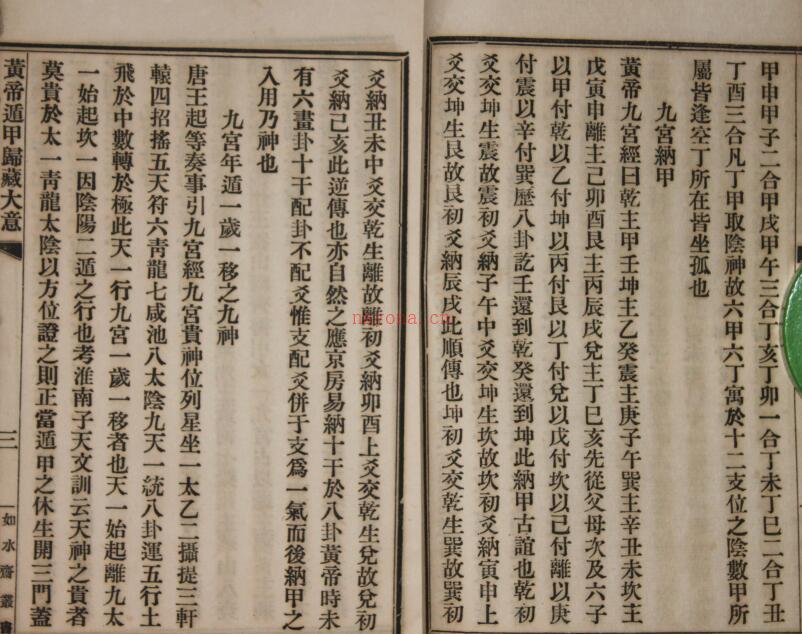 甲申甲子二合甲戌甲午三合丁亥丁卯一合丁未丁巳二合丁丑
丁酉三合凡丁甲取陰神故六甲六丁寓於十二支位之陰數甲所
屬皆逢空丁所在皆坐孤也
九宮納甲
黃帝九宮經曰乾主甲壬坤主乙癸震主庚子午巽主辛丑未坎主
戊寅申離主己卯酉艮主丙辰戌兌主丁巳亥先從父母次及六子
以甲付乾以乙付坤以丙付艮以丁付兌以戊付坎以己付離以庚
付震以辛付巽歷八卦訖壬還到乾癸還到坤此納甲古誼也乾初
爻交坤生震故震初爻納子午中爻交坤生坎故坎初爻納寅申上
爻交坤生艮故艮初爻納辰戌此順傳也坤初爻交乾生巽故巽初
爻納丑未中爻交乾生離故離初爻納卯酉上爻交乾生兌故兌初
爻納己亥此逆傳也亦自然之應京房易納十干於八卦黃帝時未
有六畫卦十干配卦不配爻惟支配爻併于支爲一氣而後納甲之
入用乃神也
九宮年遁一歲一移之九神
唐王起等奏事引九宮經九宮貴神位列星坐一太乙二攝提三軒
轅四招搖五天符六青龍七咸池八太陰九天一統八卦運五行土
飛於中數轉於極此天一行九宮一歲一移者也天一始起離九太
一始起坎一因陰陽二遁之行也考淮南子天文訓云天神之貴者
莫貴於太一青龍太陰以方位證之則正當遁甲之休生開三門蓋
黃帝遁甲歸藏大意
三
如水齋叢書